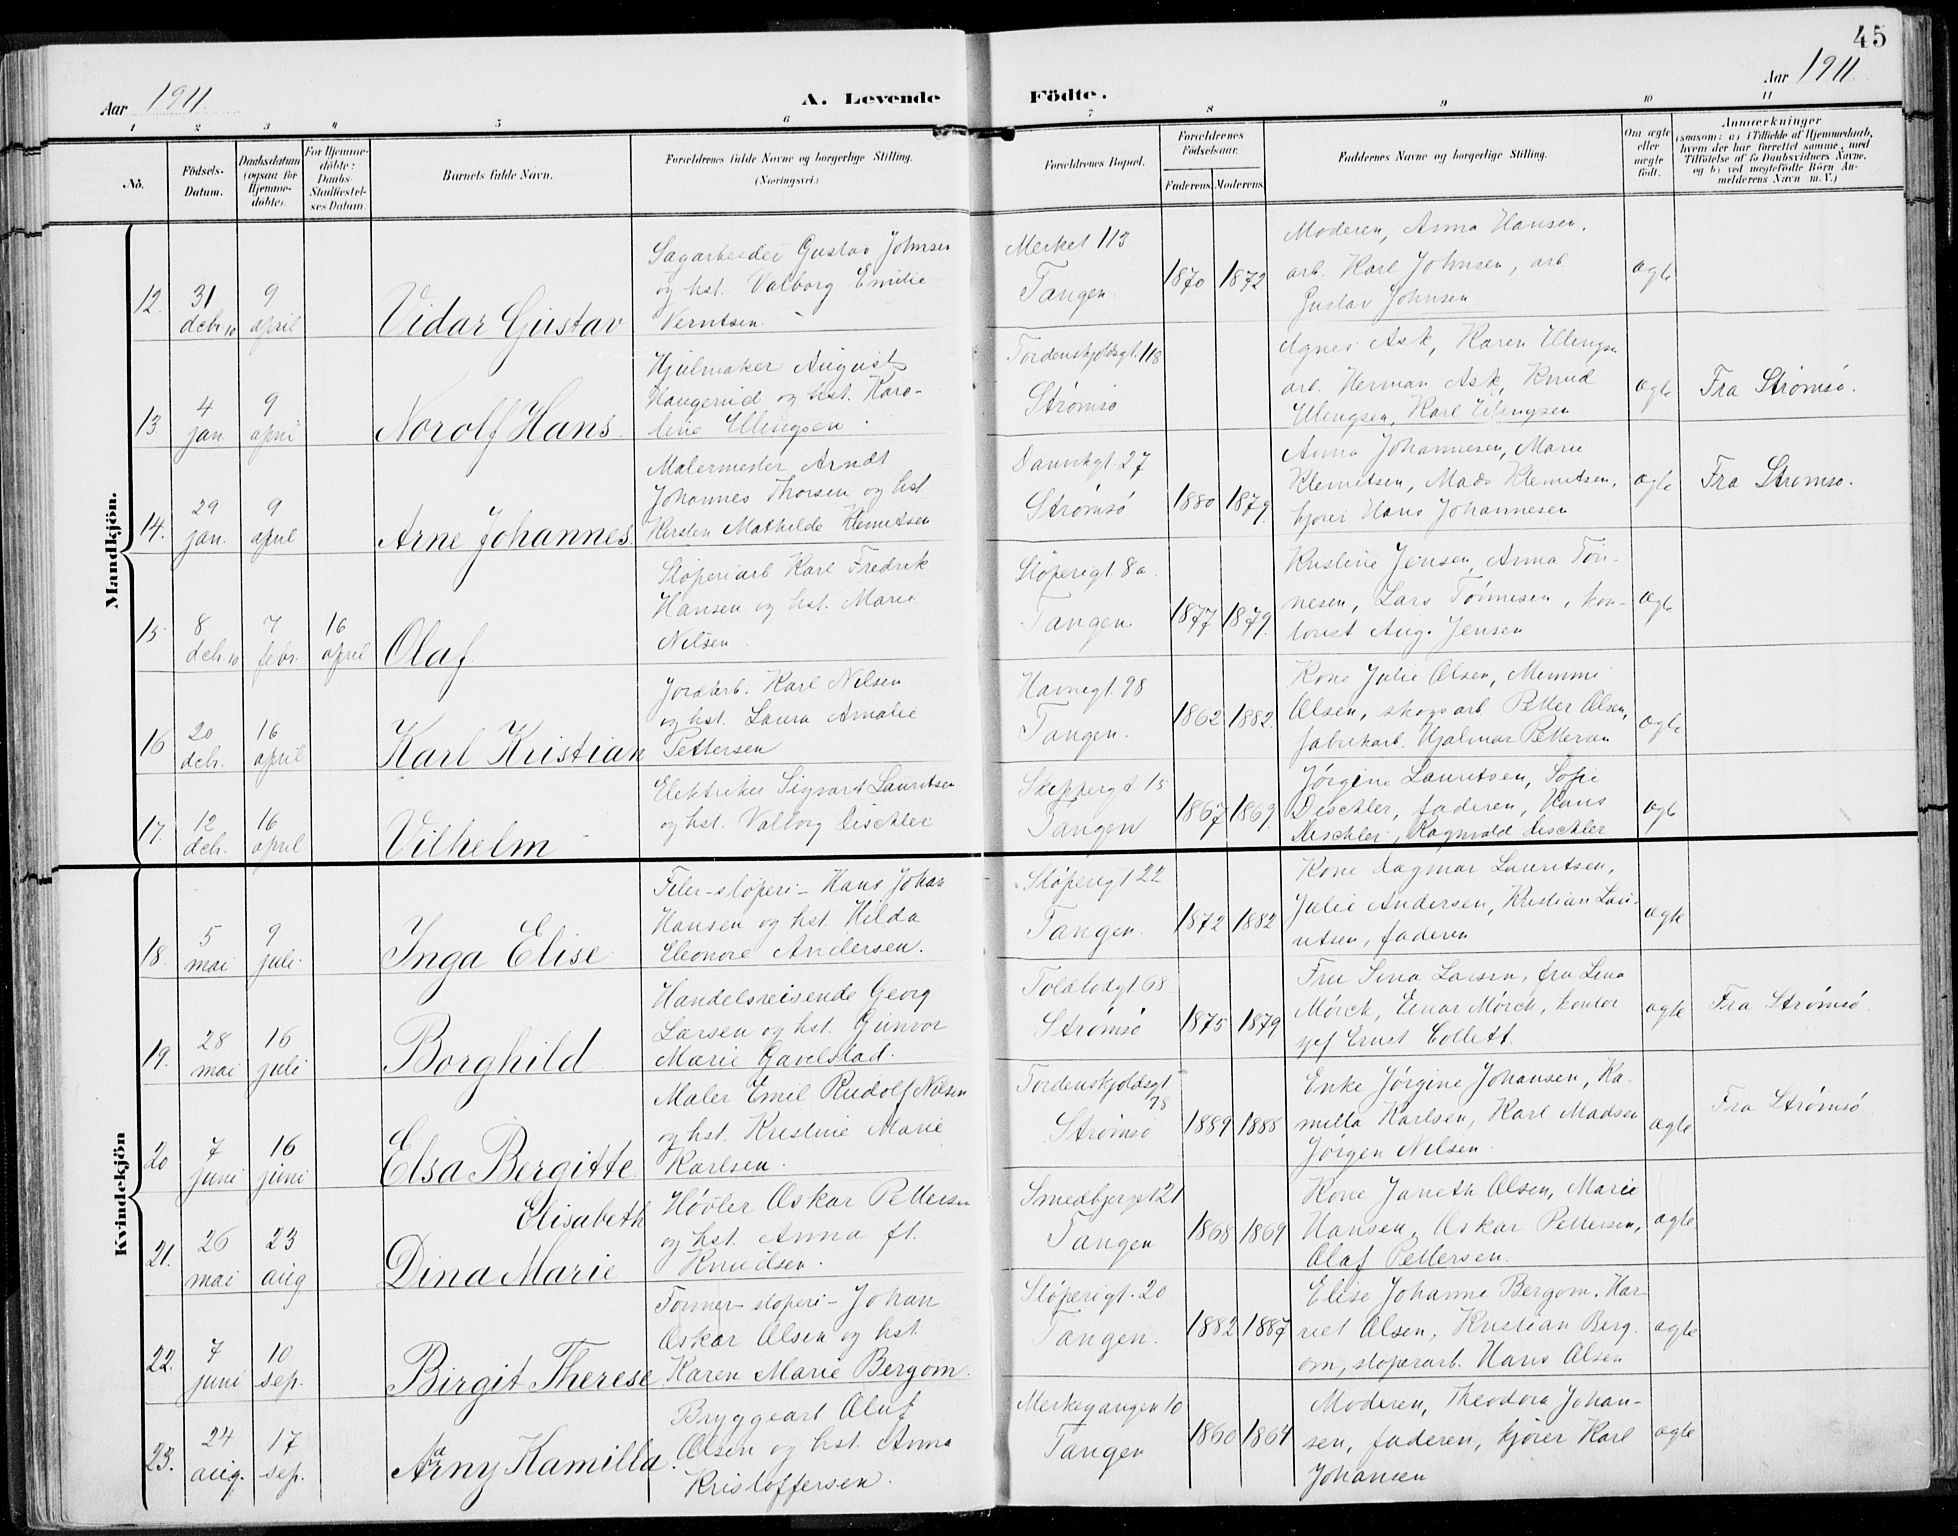 45
Aar 1911
A. Levende Födte.
Aar 1911
1 2 3 4 5 6 7 8 9 10 11
No.
Födsels-
Datum.
Daabsdatum
(ogsaa for
Hjemme-
döbte).
For Hjemme-
döbte:
Daabs-
Stadfæstel-
ses Datum.
Barnets fulde Navn.
Forældrenes fulde Navne og borgerlige Stilling.
(Næringsvei.)
Forældrenes Bopæl.
Forældrenes
Födselsaar.
Faderens. Moderens.
Faddernes Navne og borgerlige Stilling.
Om ægte
eller
uægte
födt.
Anmærkninger
(saasom: a) i Tilfælde af Hjemmedaab,
hvem der har forrettet samme, med
Tilföielse af to Daabsvidners Navne,
og b) ved uægtefödte Börn An-
melderens Navn m. V.)
Mandkjön.
12. 31 debr 10
9 april
Vidar Gustav
Sagarbeider Gustav Johnsen
og hst. Valborg Emilie
Berntsen.
Merket 113
Tangen.
1870 1872
Moderen, Anna Hansen,
arb. Karl Johnsen, arb.
Gustav Johnsen
ægte
13 4 jan
9 april
Norolf Hans
Hjulmaker August
Haugerud og hst. Karo-
line Ellingsen.
Tordenskjoldsgt. 118
Strømsø
Agnes Ask, Karen Ellingsen
arb. Herman Ask, Knud
Ellingsen, Karl Ellingsen
ægte
Fra Strømsø.
14. 29 jan.
9 april
Arne Johannes.
Malermester Arndt
Johannes Thorsen og hst
Kirsten Mathilde Klemetsen
27
Strømsø
1880 1879
Anna Johannesen, Marie
Klemetsen, Mads Klemetsen,
kjører Hans Johannesen
ægte
Fra Strømsø.
15 8 deb. 10
7 febr.
16 april
Olaf
Støperiarb Karl Fredrik
Hansen og hst. Marie
Nilsen
Støperigt. 8a
Tangen
1877 1879
Kristine Jensen, Anna Tøn-
nesen, Lars Tønnesen, kon-
torist Aug. Jensen
ægte
16 20 debr.
16 april
Karl Kristian
Jordarb. Karl Nilsen
og hst. Laura Amalie
Pettersen
Havnegt. 98
Tangen.
1862 1882
Kone Julie Olsen, Memmi
Olsen, skogsarb Petter Olsen,
fabrikarb. Hjalmar Pettersen
ægte
17. 12 deb.
16 april
Vilhelm
Elektriker Sigvard Lauritsen
og hst. Valborg Dischler
Skippergt 15
Tangen
1867 1869
Jørgine Lauritsen, Sofie
Dischler, faderen, Hans
Dischler, Ragnvald Dischler
ægte
Kvindekjön
18. 5 mai
9 juli
Inga Elise
Filer-støperi- Hans Johan
Hansen og hst. Hilda
Eleonore Andersen.
Støperigt 22
Tangen.
1872 1882
Kone Dagmar Lauritsen,
Julie Andersen, Kristian Lau-
ritsen, faderen
ægte
19. 28 mai
16 juli
Borghild
Handelsreisende Georg
Larsen og hst. Gunvor
Marie Gavelstad.
Toldbodgt 68
Strømsø
1875 1879
Fru Sina Larsen, fru Lina
Mørck, Einar Mørck, kontor
Ernst Collett.
ægte
Fra Strømsø.
20 7 juni
16 juni
Elsa Bergitte
Elisabeth
Maler Emil Rudolf Nilsen
og hst. Kristine Marie
Karlsen.
Tordenskjoldsgt
78
Strømsø
1889 1888
Enke Jørgine Johansen, Ka-
milla Karlsen, Karl Madsen
Jørgen Nilsen
ægte
Fra Strømsø
21. 26 mai
23 aug
Dina Marie
Høvler Oskar Pettersen
og hst. Anna ft.
Knudsen.
Smedbjergt 21
Tangen
1868 1869
Kone Janeth Olsen, Marie
Hansen, Oskar Pettersen,
Olaf Pettersen.
ægte
22. 7 juni
10 sep.
Birgit Therese
Former-støperi- Johan
Oskar Olsen og hst.
Karen Marie Bergom.
Støperigt. 20
Tangen.
1882 1887
Elise Johanne Bergom, Har-
riet Olsen, Kristian Berg-
om, støperarb. Hans Olsen
ægte
23. 24 aug.
17 sep.
Arny Kamilla.
Bryggearb Oluf
Olsen og hst. Anna
Kristoffersen.
Merkegangen 10
Tangen
1860 1864
Moderen, Theodora Johan-
sen, faderen, kjører Karl
Johansen
ægte